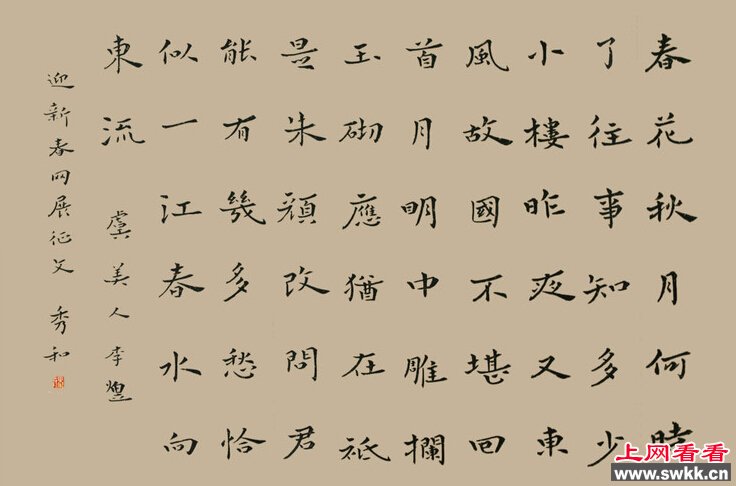 春花秋月何時
了往事知多少
小樓昨夜又東
風故國不堪回
首月明中雕欄
玉砌應猶在祇
是朱顔改問君
能有幾多愁恰
似一江春水向
東流 虞美人李煜
迎新春网展征文 秀和
上网看看
www.swkk.cn